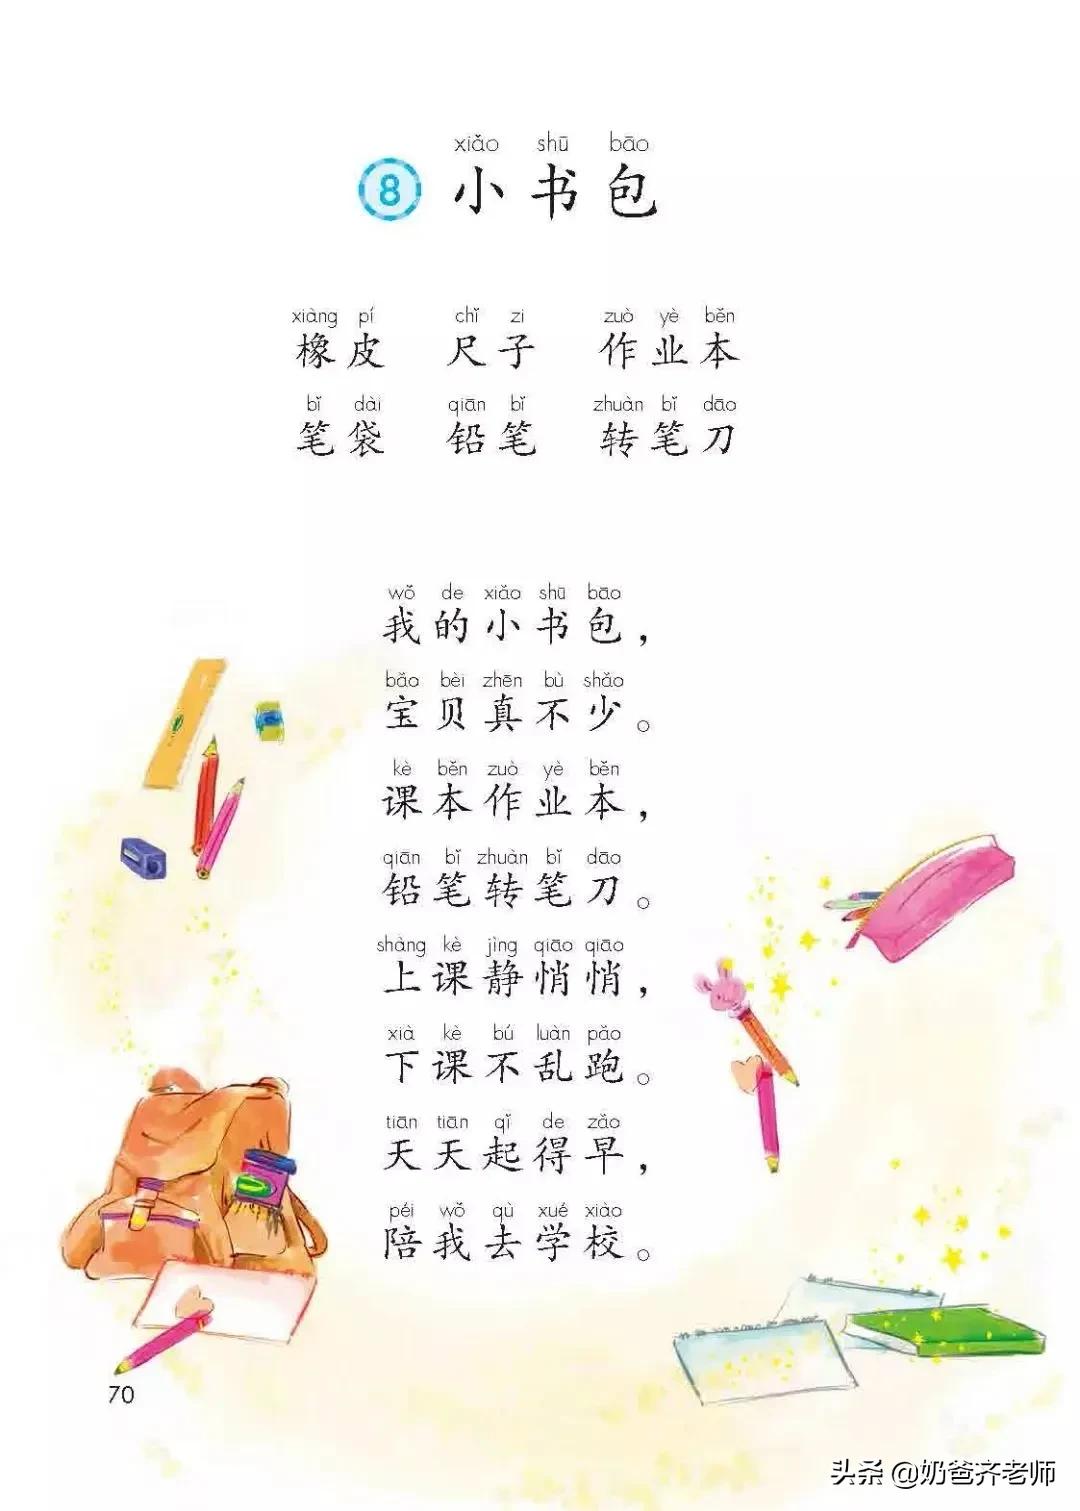 xiǎo shū bāo
8 小书包
xiàng pí chǐ zi zuò yè běn
橡皮 尺子 作业本
bǐ dài qiān bǐ zhuàn bǐ dāo
笔袋 铅笔 转笔刀
wǒ de xiǎo shū bāo
我的小书包，
bǎo bèi zhēn bù shǎo
宝贝真不少。
kè běn zuò yè běn
课本作业本，
qiān bǐ zhuàn bǐ dāo
铅笔转笔刀。
shàng kè jìng qiāo qiāo
上课静悄悄，
xià kè bú luàn pǎo
下课不乱跑。
tiān tiān qǐ de zǎo
天天起得早，
péi wǒ qù xué xiào
陪我去学校。
70
头条 @奶爸齐老师